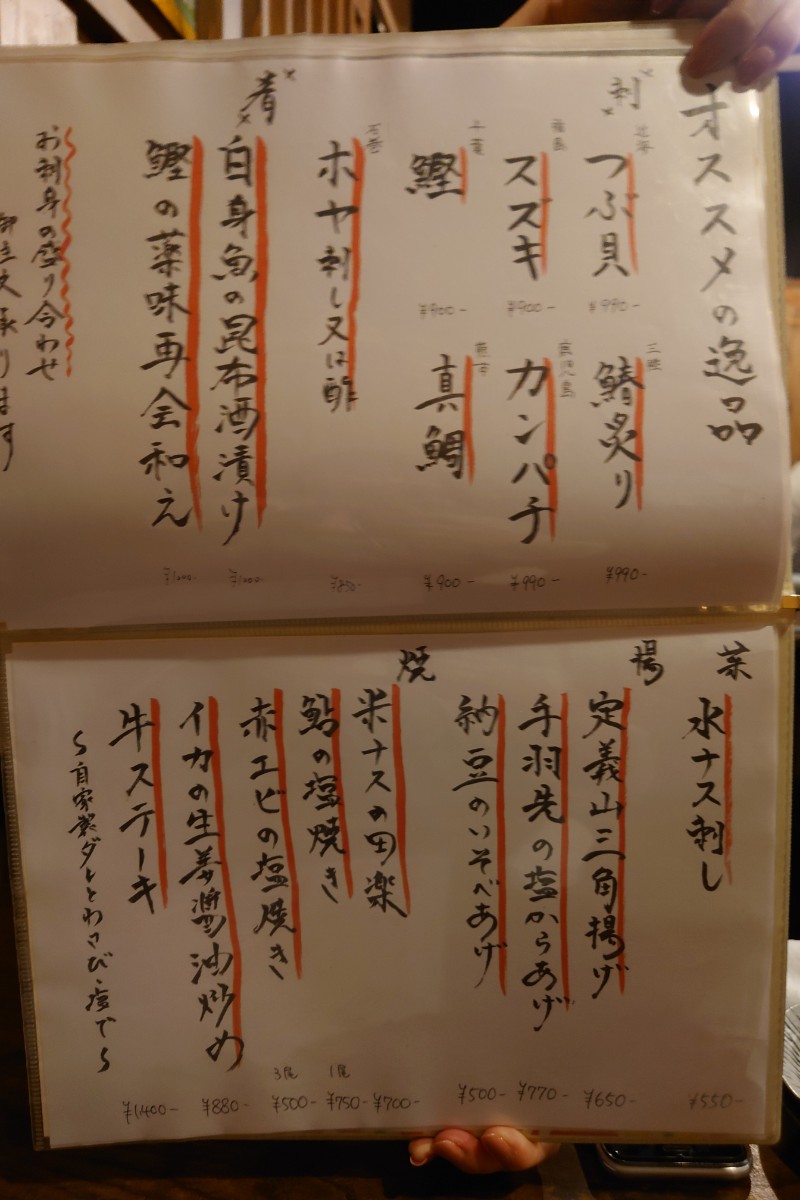 オススメの逸品
刺
北海
つぶ貝
¥990-
三陸
鰆炙り
¥990-
福島
スズキ
¥900-
鹿児島
カンパチ
¥990-
千葉
鰹
¥900-
真鯛
¥900-
石巻
ホヤ刺し又は酢
¥850-
肴
白身魚の昆布酒漬け
¥1000-
鰹の薬味再会和え
¥1000-
お刺身の盛り合わせ
御注文承ります
菜
水ナス刺し
¥550-
揚
定義山三角揚げ
¥650-
手羽先の塩からあげ
¥770-
納豆のいそべあげ
¥500-
焼
米ナスの田楽
¥700-
鮎の塩焼き
1尾
¥750-
赤エビの塩焼き
3尾
¥500-
イカの生姜醤油炒め
¥880-
牛ステーキ
¥1,400-
〜自家製ダレとわさび・塩で〜